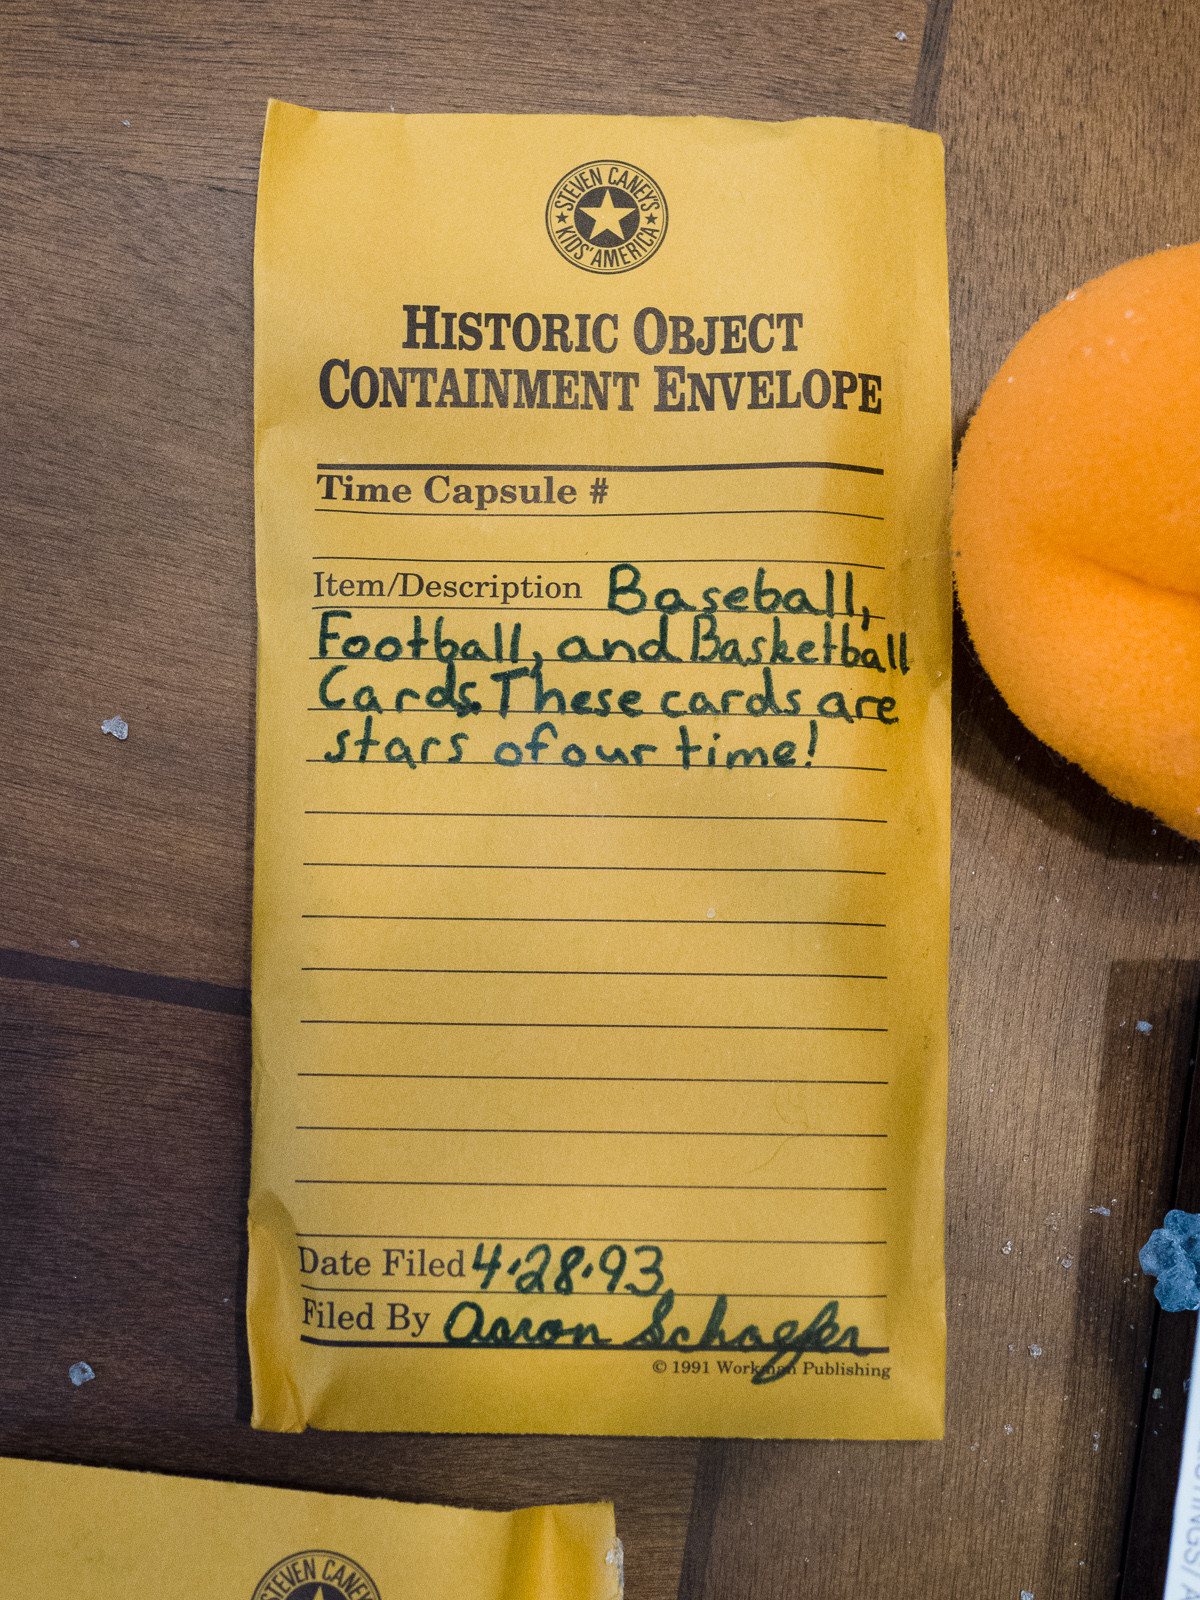 STEVEN CANEY'S
KIDS' AMERICA
HISTORIC OBJECT
CONTAINMENT ENVELOPE
Time Capsule #
Item/Description Baseball,
Football, and Basketball
Cards. These cards are
stars of our time!
Date Filed 4·28·93
Filed By Aaron Schaefer
© 1991 Workman Publishing
STEVEN CANEY'S